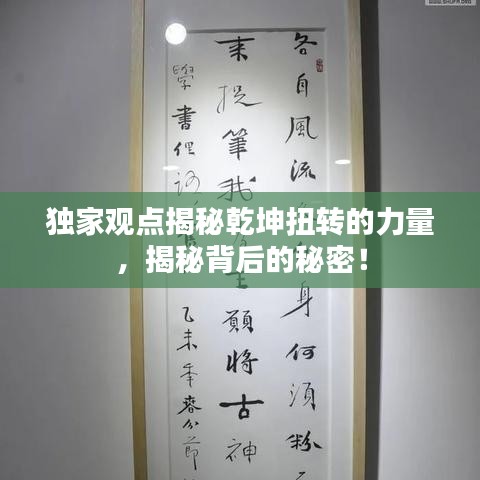 独家观点揭秘乾坤扭转的力量
，揭秘背后的秘密！
各自風流身何須粉
来捉筆我主願將古神
學書俚乙未年春分節